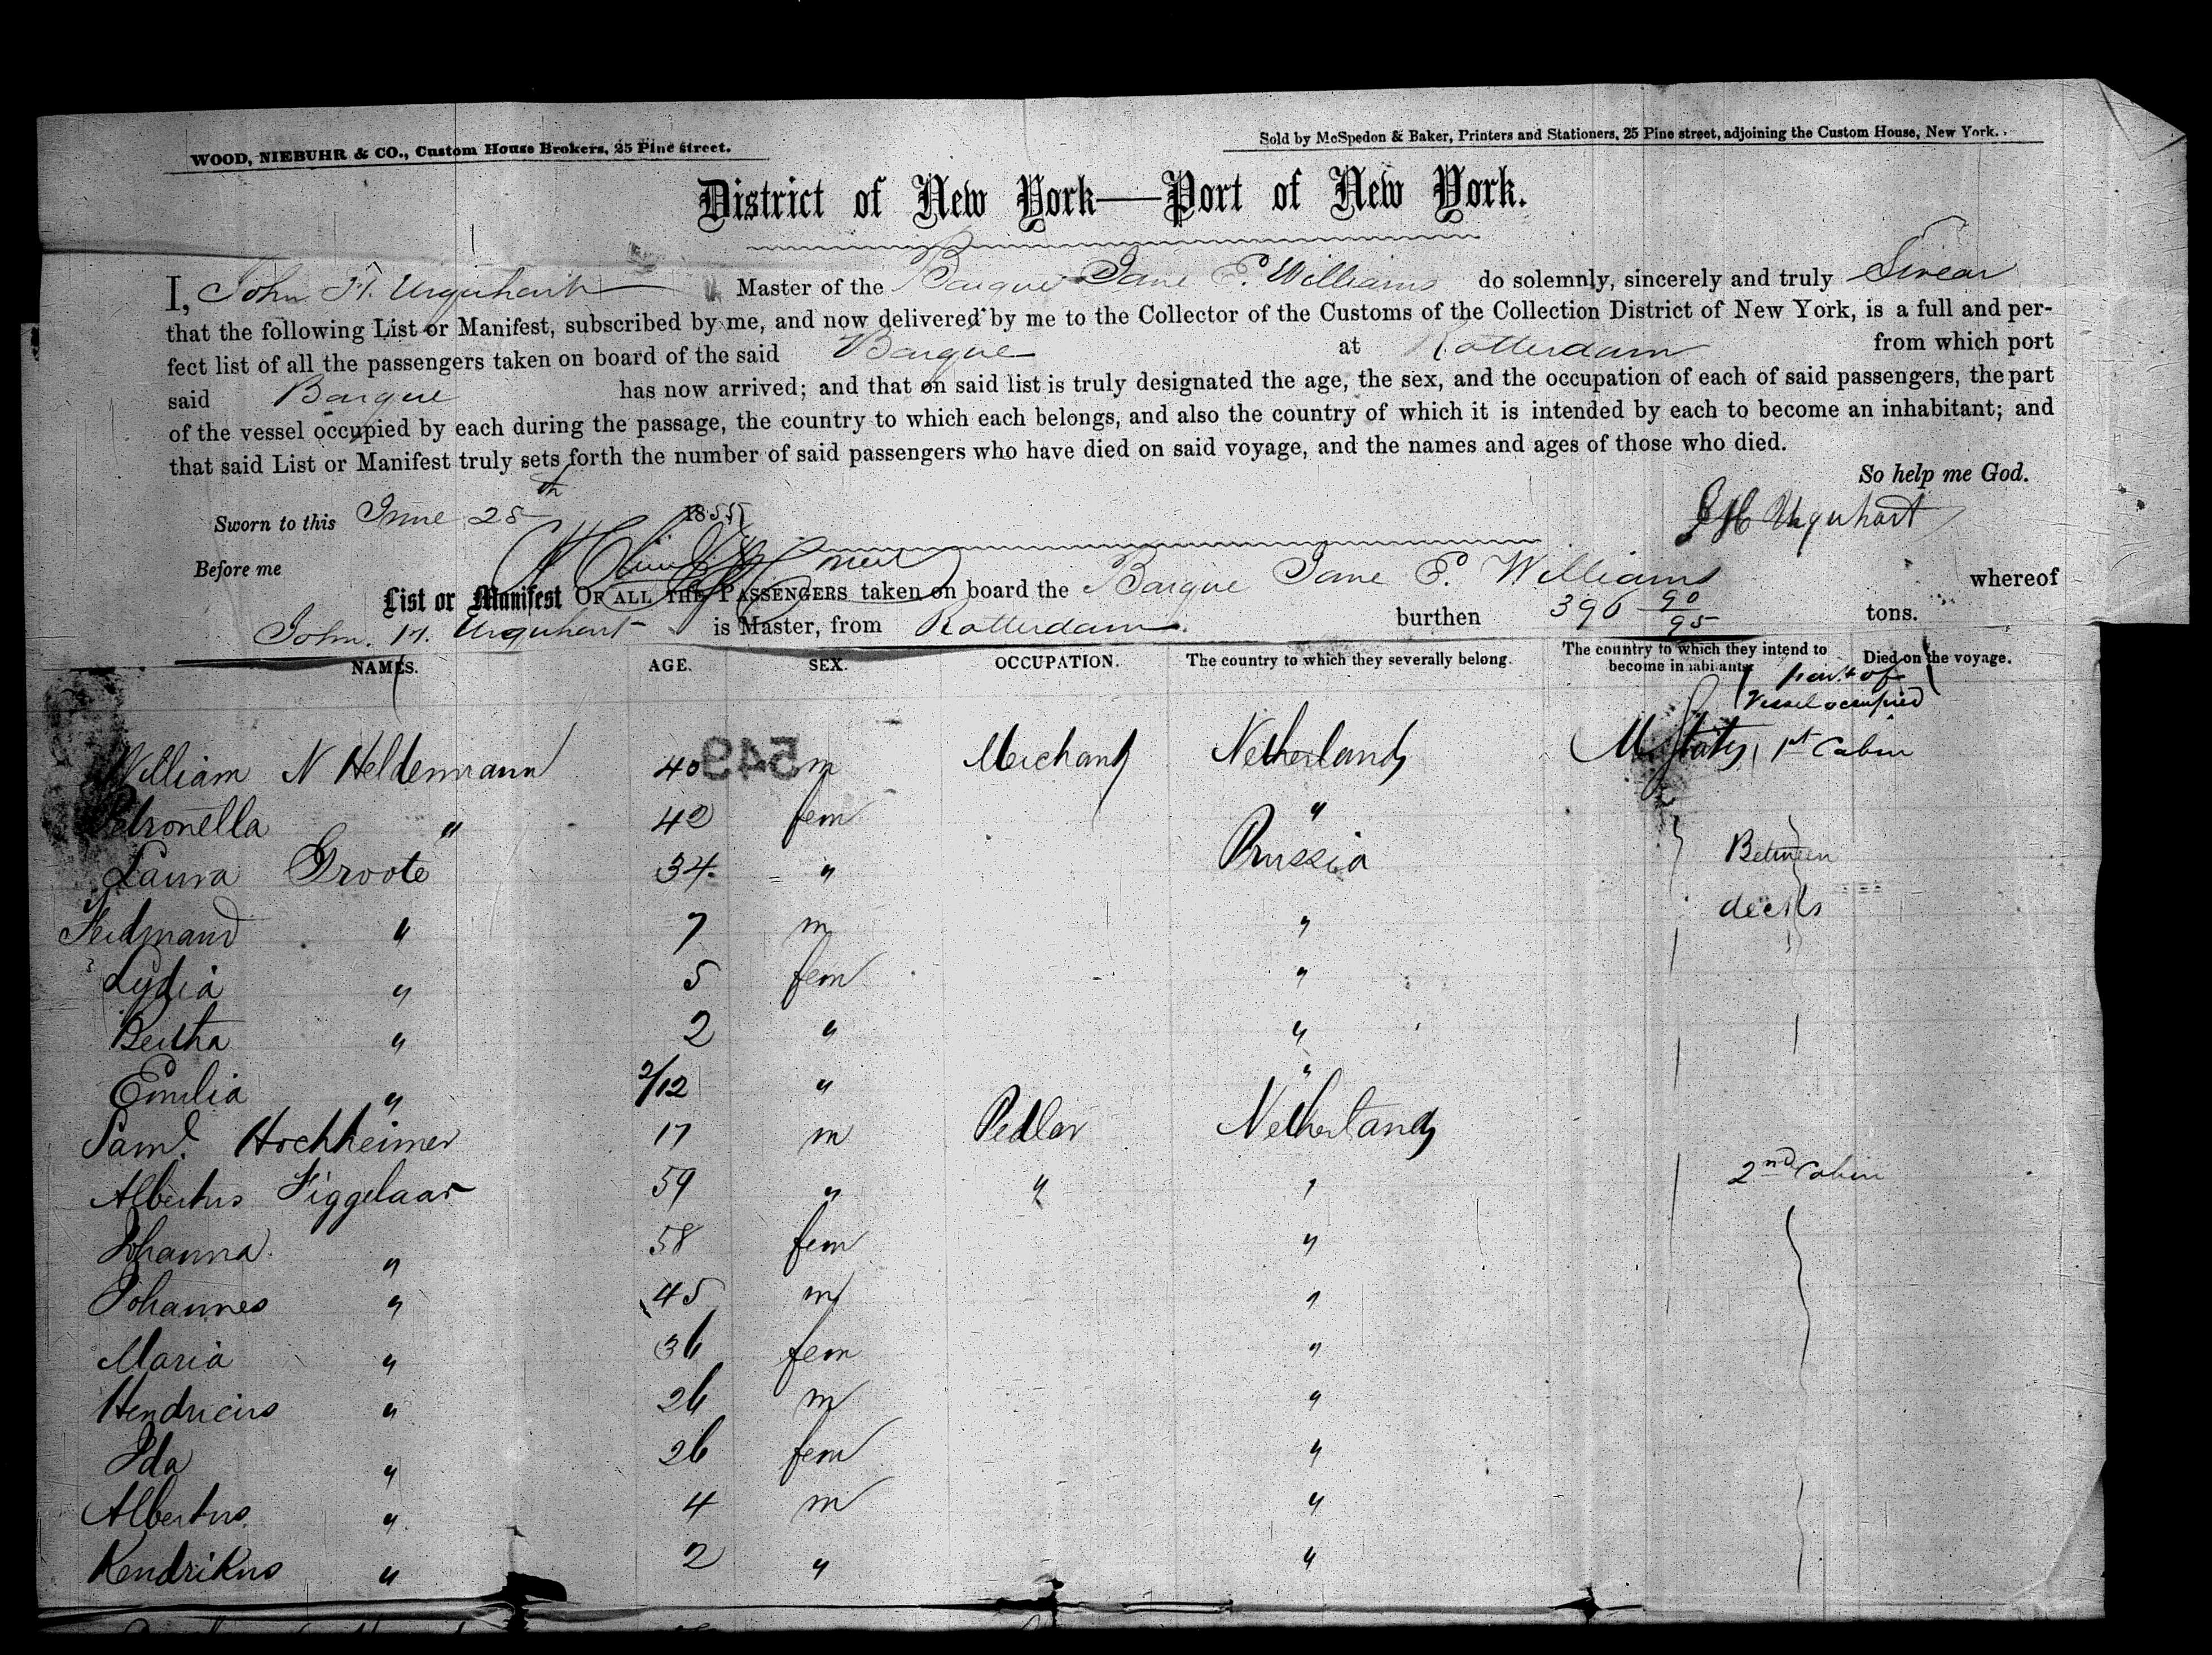 WOOD, NIEBUHR & CO., Custom House Brokers, 25 Pine street.
Sold by McSpedon & Baker, Printers and Stationers, 25 Pine street, adjoining the Custom House, New York.
District of New York—Port of New York.
I, John H. Urquhart Master of the Barque Jane E. Williams do solemnly, sincerely and truly Swear
that the following List or Manifest, subscribed by me, and now delivered by me to the Collector of the Customs of the Collection District of New York, is a full and per-
fect list of all the passengers taken on board of the said Barque at Rotterdam from which port
said Barque has now arrived; and that on said list is truly designated the age, the sex, and the occupation of each of said passengers, the part
of the vessel occupied by each during the passage, the country to which each belongs, and also the country of which it is intended by each to become an inhabitant; and
that said List or Manifest truly sets forth the number of said passengers who have died on said voyage, and the names and ages of those who died.
So help me God.
Sworn to this June 25th 1855
J H Urquhart
Before me
List or Manifest OF ALL THE PASSENGERS taken on board the Barque Jane E. Williams whereof
John. H. Urquhart is Master, from Rotterdam. burthen 396 90/95 tons.
NAMES. AGE. SEX. OCCUPATION. The country to which they severally belong. The country to which they intend to become inhabitants. Died on the voyage.
part of
Vessel occupied
William N Heldenmann 40 m Merchant Netherlands States 1st Cabin
549
Petronella " 42 fem "
Laura Groote 34 " Prussia Between
Ferdinand " 7 m " decks
Lydia " 5 fem "
Bertha " 2 " "
Emilia " 2/12 " "
Saml. Hochheimer 17 m Pedlar Netherlands
Albertus Figgelaar 59 " " " 2nd Cabin
Johanna " 58 fem "
Johannes " 45 m "
Maria " 36 fem "
Hendricus " 26 m "
Ida " 26 fem "
Albertus " 4 m "
Kendrikus " 2 " "